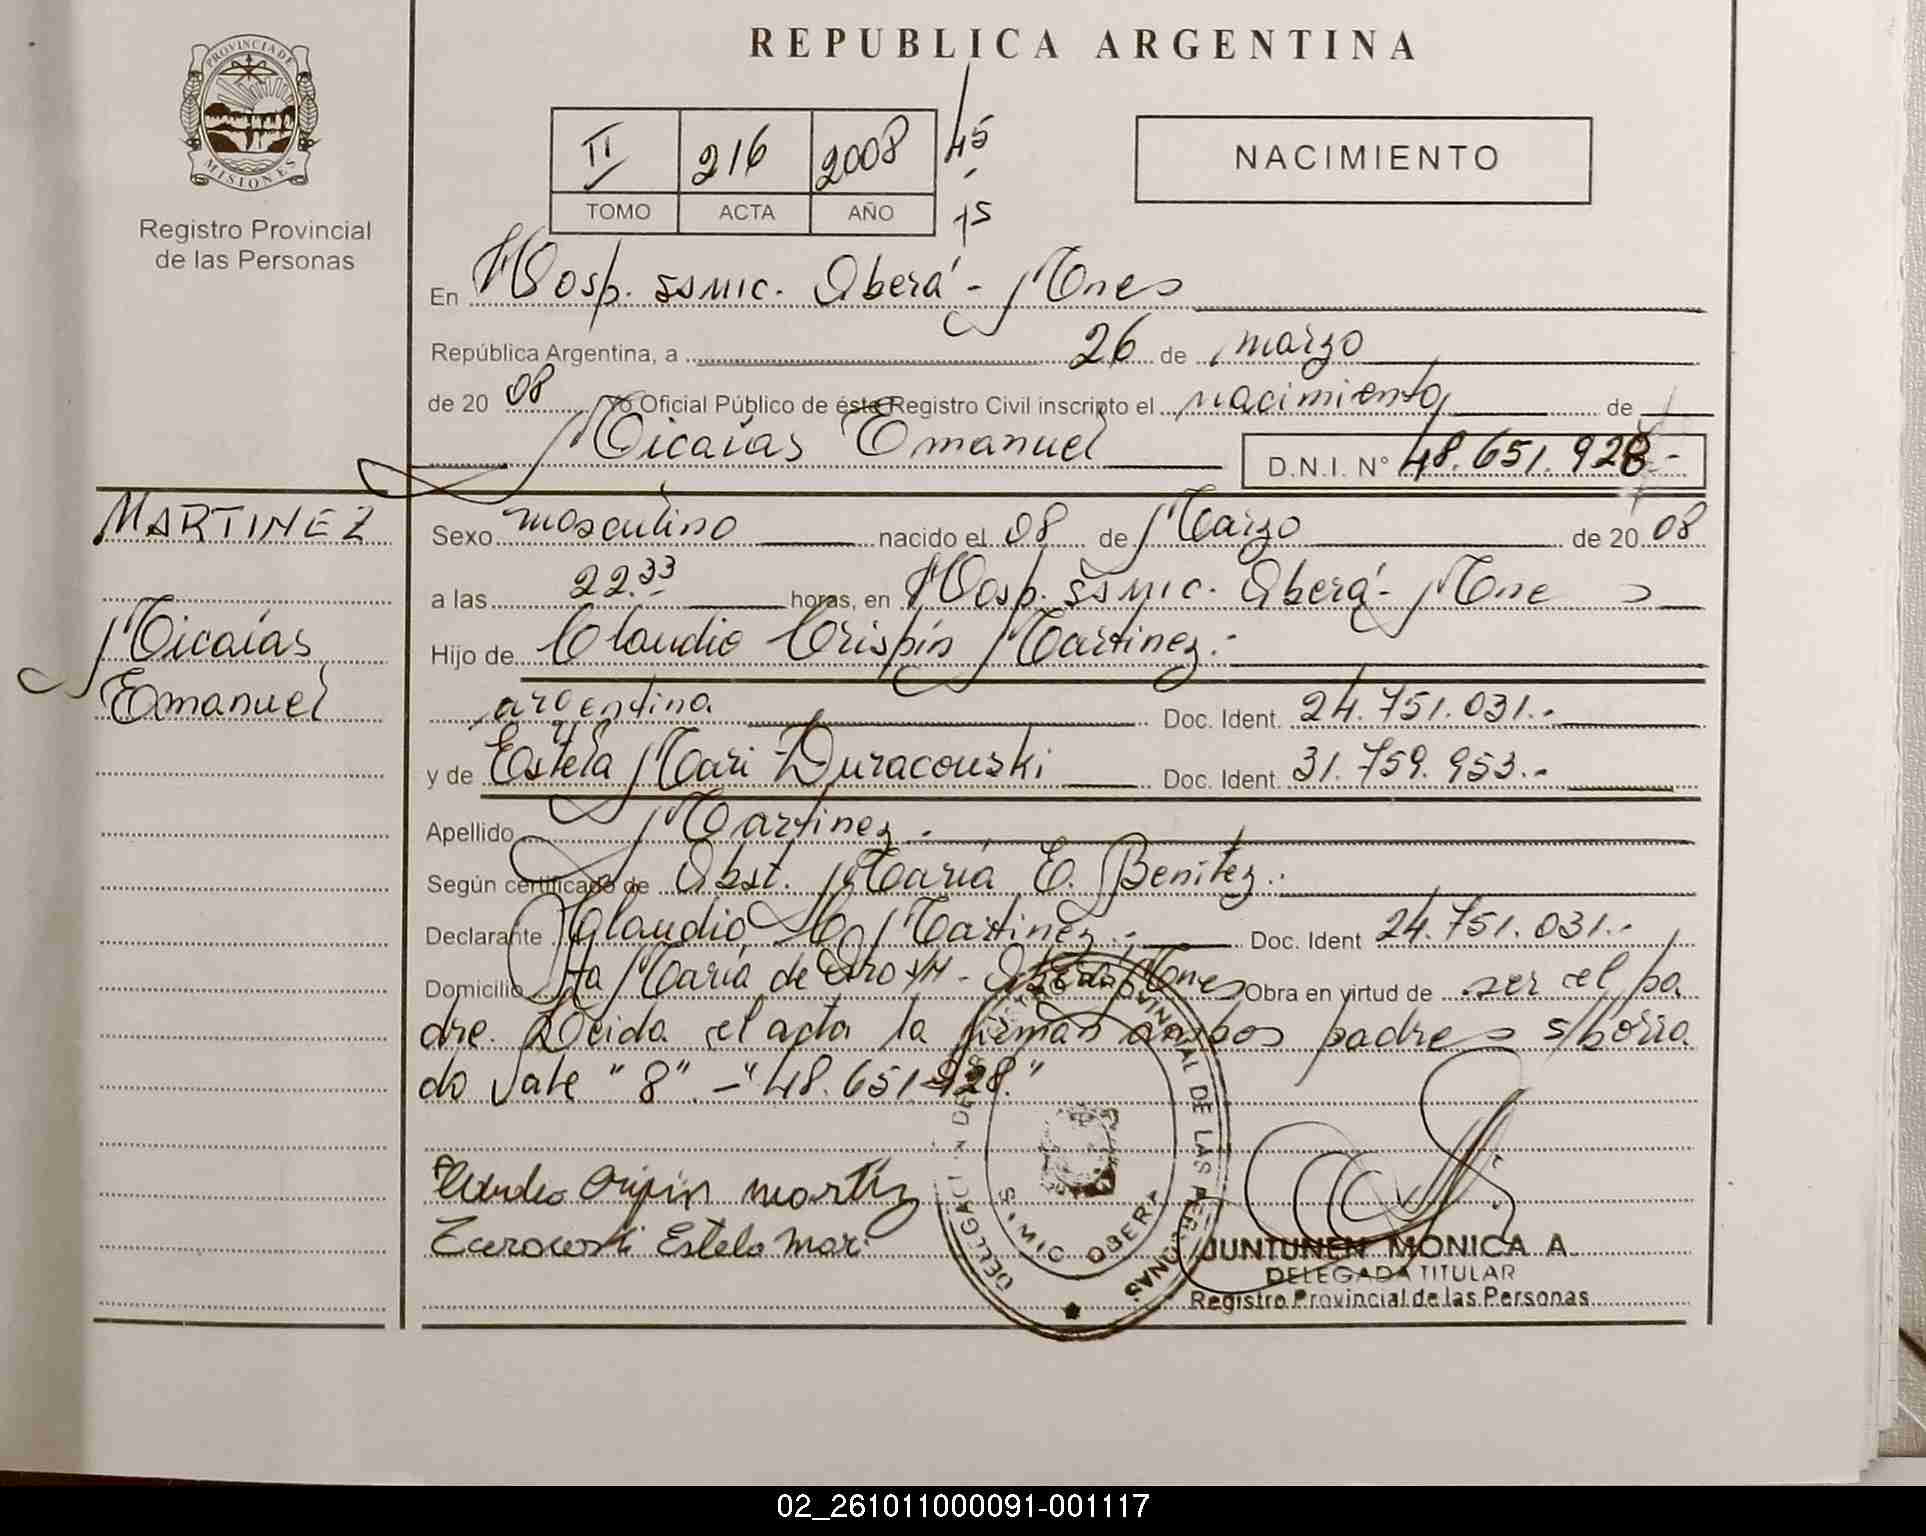 REPUBLICA ARGENTINA
PROVINCIA DE
MISIONES
Registro Provincial
de las Personas
II 216 2008
TOMO ACTA AÑO
45
15
NACIMIENTO
En Hosp. SSMIC. Oberá - Mnes
República Argentina, a 26 de marzo
de 20 08 Yo Oficial Público de éste Registro Civil inscripto el nacimiento de
Micaías Emanuel D.N.I. Nº 48.651.928.-
MARTINEZ
Micaías
Emanuel
Sexo masculino nacido el 08 de Marzo de 20 08
a las 22.33 horas, en Hosp. SSMIC. Oberá - Mnes
Hijo de Claudio Crispín Martinez.-
argentina Doc. Ident. 24.751.031.-
y de Estela Mari Duracouski Doc. Ident. 31.759.953.-
Apellido Martinez.-
Según certificado de Obst. María E. Benítez.-
Declarante Claudio C. Martinez.- Doc. Ident 24.751.031.-
Domicilio Sta María de Oro s/n - Oberá Mnes Obra en virtud de ser el pa
dre. Leida el acta la firman ambos padres s/borra
do vale "8" - "48.651.928."
Claudio Crispín Martinez
Estela Mari
PROVINCIAL DE LAS PERSONAS.
DELEGACI N
OBER
JUNTUNEN MONICA A.
DELEGADA TITULAR
Registro Provincial de las Personas
02_261011000091-001117